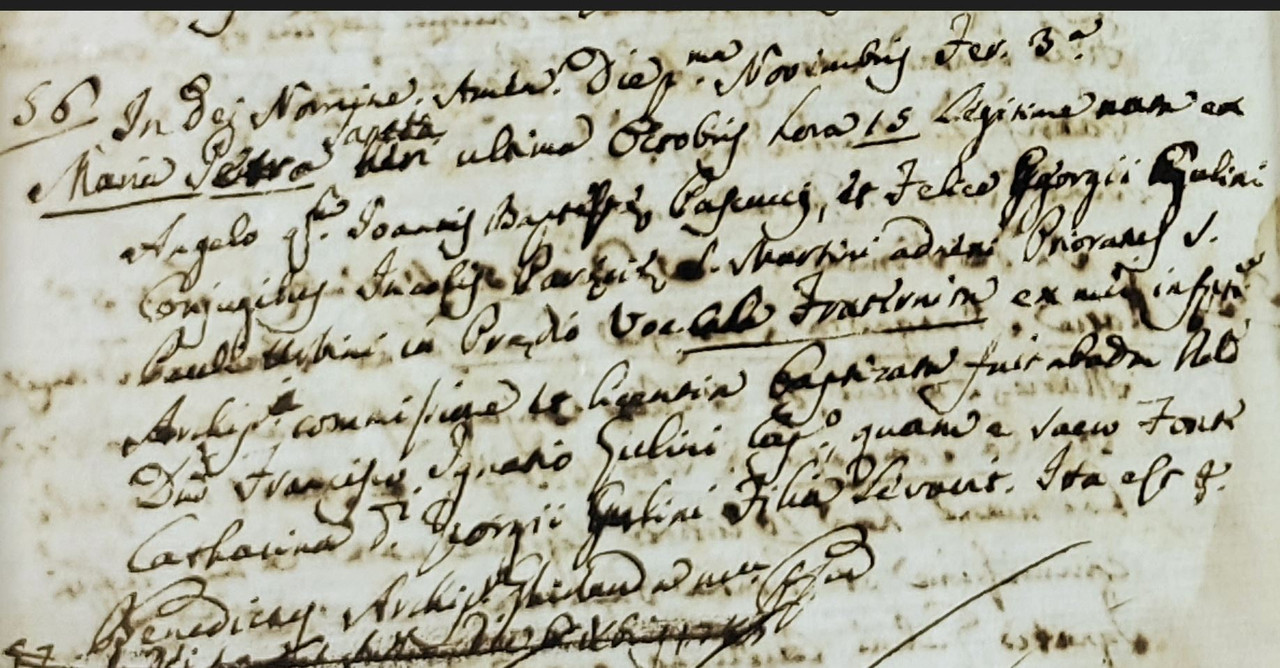 56 In Dei Nomine. Amen. Die p.ma Novembris Fer. 3.a
Maria Petra Santa heri ultima Octobris hora 15 Legitime nata ex
Angelo q. Joannis Baptistę Pascucij, et Felice Georgii Gulini
Conjugibus Incolis Paręcię S. Martini Prioratus S.
Pauli Urbini in Prędio Vocab.lo Fraternita ex mei infrti
Archip. commissione et licentia baptizata fuit
Dno Francisco Ignatio Gulini Cap.o, quam e sacro Fonte
Catharina d.i Georgii Gulini Filia Levavit. Ita est
Benedictus Archip.
57